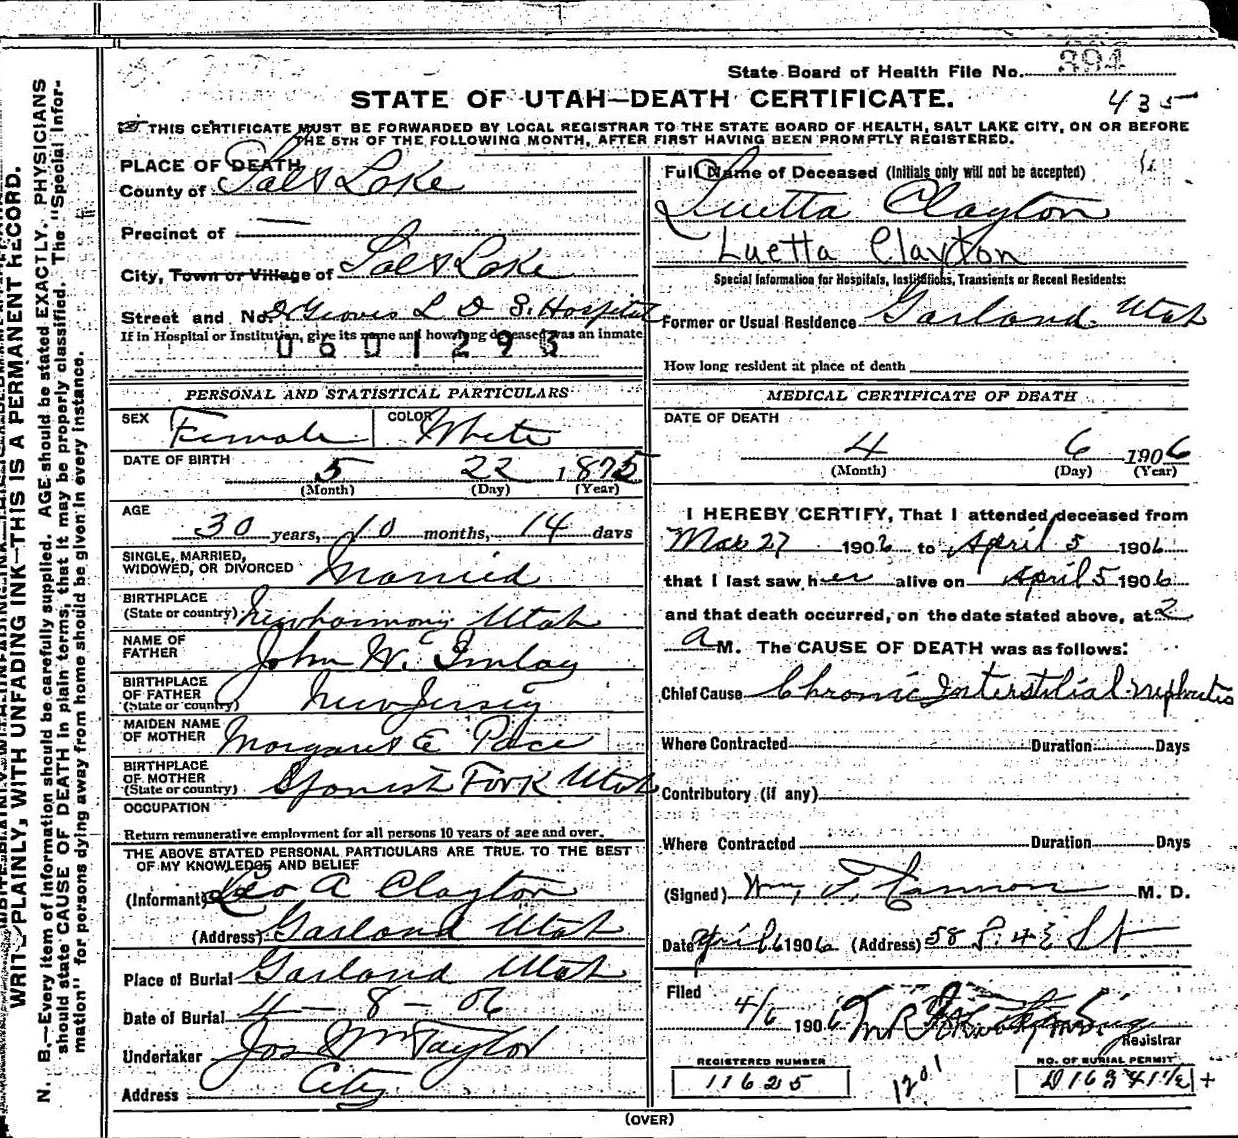 State Board of Health File No. 394
STATE OF UTAH—DEATH CERTIFICATE.
435
THIS CERTIFICATE MUST BE FORWARDED BY LOCAL REGISTRAR TO THE STATE BOARD OF HEALTH, SALT LAKE CITY, ON OR BEFORE
THE 5TH OF THE FOLLOWING MONTH, AFTER FIRST HAVING BEEN PROMPTLY REGISTERED.
PLACE OF DEATH
County of Salt Lake
Precinct of —
City, Town or Village of Salt Lake
Street and No. Groves L D S. Hospital
If in Hospital or Institution, give its name and how long deceased was an inmate
0601293
PERSONAL AND STATISTICAL PARTICULARS
SEX Female COLOR White
DATE OF BIRTH 5 22 1875
(Month) (Day) (Year)
AGE
30 years, 10 months, 14 days
SINGLE, MARRIED,
WIDOWED, OR DIVORCED Married
BIRTHPLACE
(State or country) Newharmony Utah
NAME OF
FATHER John W. Imlay
BIRTHPLACE
OF FATHER
(State or country) New Jersey
MAIDEN NAME
OF MOTHER Margaret E Pace
BIRTHPLACE
OF MOTHER
(State or country) Spanish Fork Utah
OCCUPATION
Return remunerative employment for all persons 10 years of age and over.
THE ABOVE STATED PERSONAL PARTICULARS ARE TRUE TO THE BEST
OF MY KNOWLEDGE AND BELIEF
(Informant) Leo A Clayton
(Address) Garland Utah
Place of Burial Garland Utah
Date of Burial 4 — 8 — 06
Undertaker Jos Wm Taylor
Address City
Full Name of Deceased (Initials only will not be accepted)
Luetta Clayton
Luetta Clayton
Special Information for Hospitals, Institutions, Transients or Recent Residents:
Former or Usual Residence Garland Utah
How long resident at place of death
MEDICAL CERTIFICATE OF DEATH
DATE OF DEATH
4 6 1906
(Month) (Day) (Year)
I HEREBY CERTIFY, That I attended deceased from
Mar 27 1906 to April 5 1906
that I last saw her alive on April 5 1906
and that death occurred, on the date stated above, at 2
a M. The CAUSE OF DEATH was as follows:
Chief Cause Chronic Interstitial nephritis
Where Contracted Duration Days
Contributory (if any)
Where Contracted Duration Days
(Signed) Wm. T. Cannon M. D.
Date April 6 1906 (Address) 58 S. 4 E St
Filed
4/6 1906
Registrar
REGISTERED NUMBER
11625
1201
NO. OF BURIAL PERMIT
(OVER)
N. B.—Every item of information should be carefully supplied. AGE should be stated EXACTLY. PHYSICIANS
should state CAUSE OF DEATH in plain terms, that it may be properly classified. The "Special Infor-
mation" for persons dying away from home should be given in every instance.
WRITE PLAINLY, WITH UNFADING INK—THIS IS A PERMANENT RECORD.